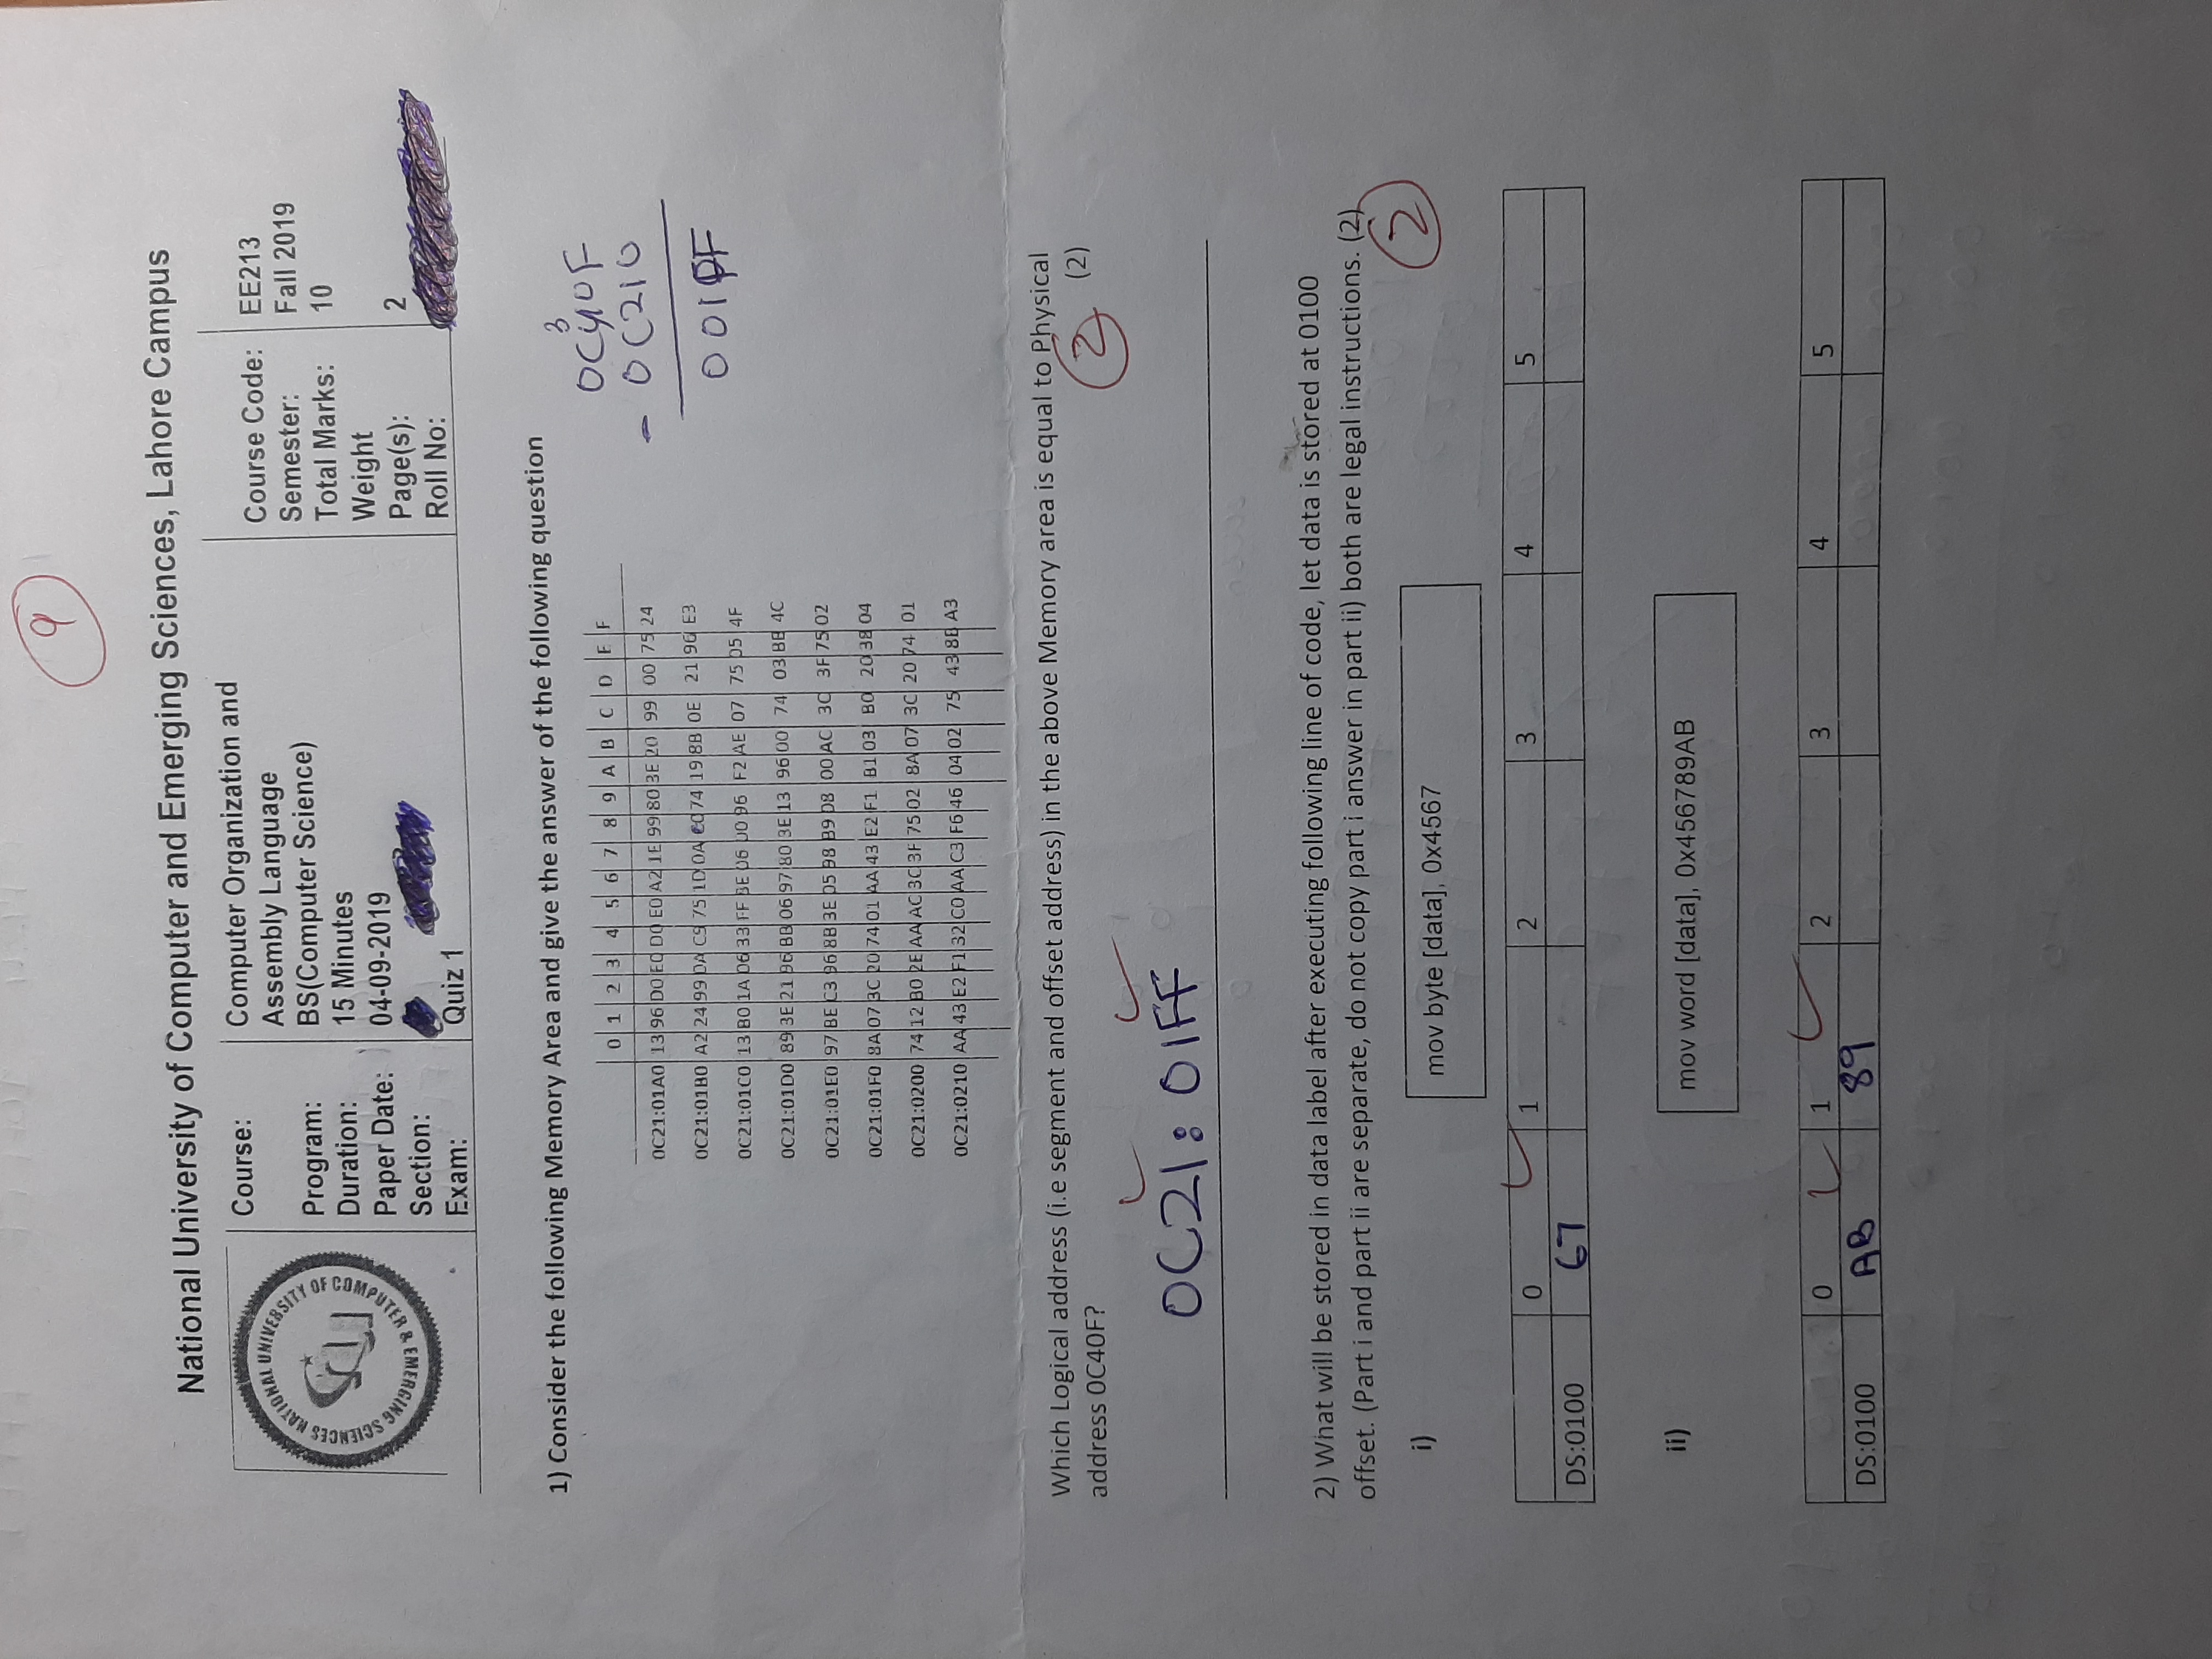 9
National University of Computer and Emerging Sciences, Lahore Campus
NATIONAL UNIVERSITY OF COMPUTER & EMERGING SCIENCES
Course: Computer Organization and Assembly Language
Program: BS(Computer Science)
Duration: 15 Minutes
Paper Date: 04-09-2019
Section:
Exam: Quiz 1
Course Code: EE213
Semester: Fall 2019
Total Marks: 10
Weight
Page(s): 2
Roll No:
1) Consider the following Memory Area and give the answer of the following question
0 1 2 3 4 5 6 7 8 9 A B C D E F
0C21:01A0 13 96 D0 E0 D0 E0 A2 1E 99 80 3E 20 99 00 75 24
0C21:01B0 A2 24 99 0A C9 75 1D 0A C0 74 19 8B 0E 21 96 E3
0C21:01C0 13 B0 1A 06 33 FF BE 06 00 96 F2 AE 07 75 05 4F
0C21:01D0 89 3E 21 96 BB 06 97 80 3E 13 96 00 74 03 BB 4C
0C21:01E0 97 BE C3 96 8B 3E 05 98 B9 08 00 AC 3C 3F 75 02
0C21:01F0 8A 07 3C 20 74 01 AA 43 E2 F1 B1 03 B0 20 38 04
0C21:0200 74 12 B0 2E AA AC 3C 3F 75 02 8A 07 3C 20 74 01
0C21:0210 AA 43 E2 F1 32 C0 AA C3 F6 46 04 02 75 43 8B A3
3
0C40F
- 0C210
001FF
Which Logical address (i.e segment and offset address) in the above Memory area is equal to Physical
address 0C40F? (2)
2
0C21: 01FF
2) What will be stored in data label after executing following line of code, let data is stored at 0100
offset. (Part i and part ii are separate, do not copy part i answer in part ii) both are legal instructions. (2)
2
i) mov byte [data], 0x4567
0 1 2 3 4 5
DS:0100 67
ii) mov word [data], 0x456789AB
0 1 2 3 4 5
DS:0100 AB 89